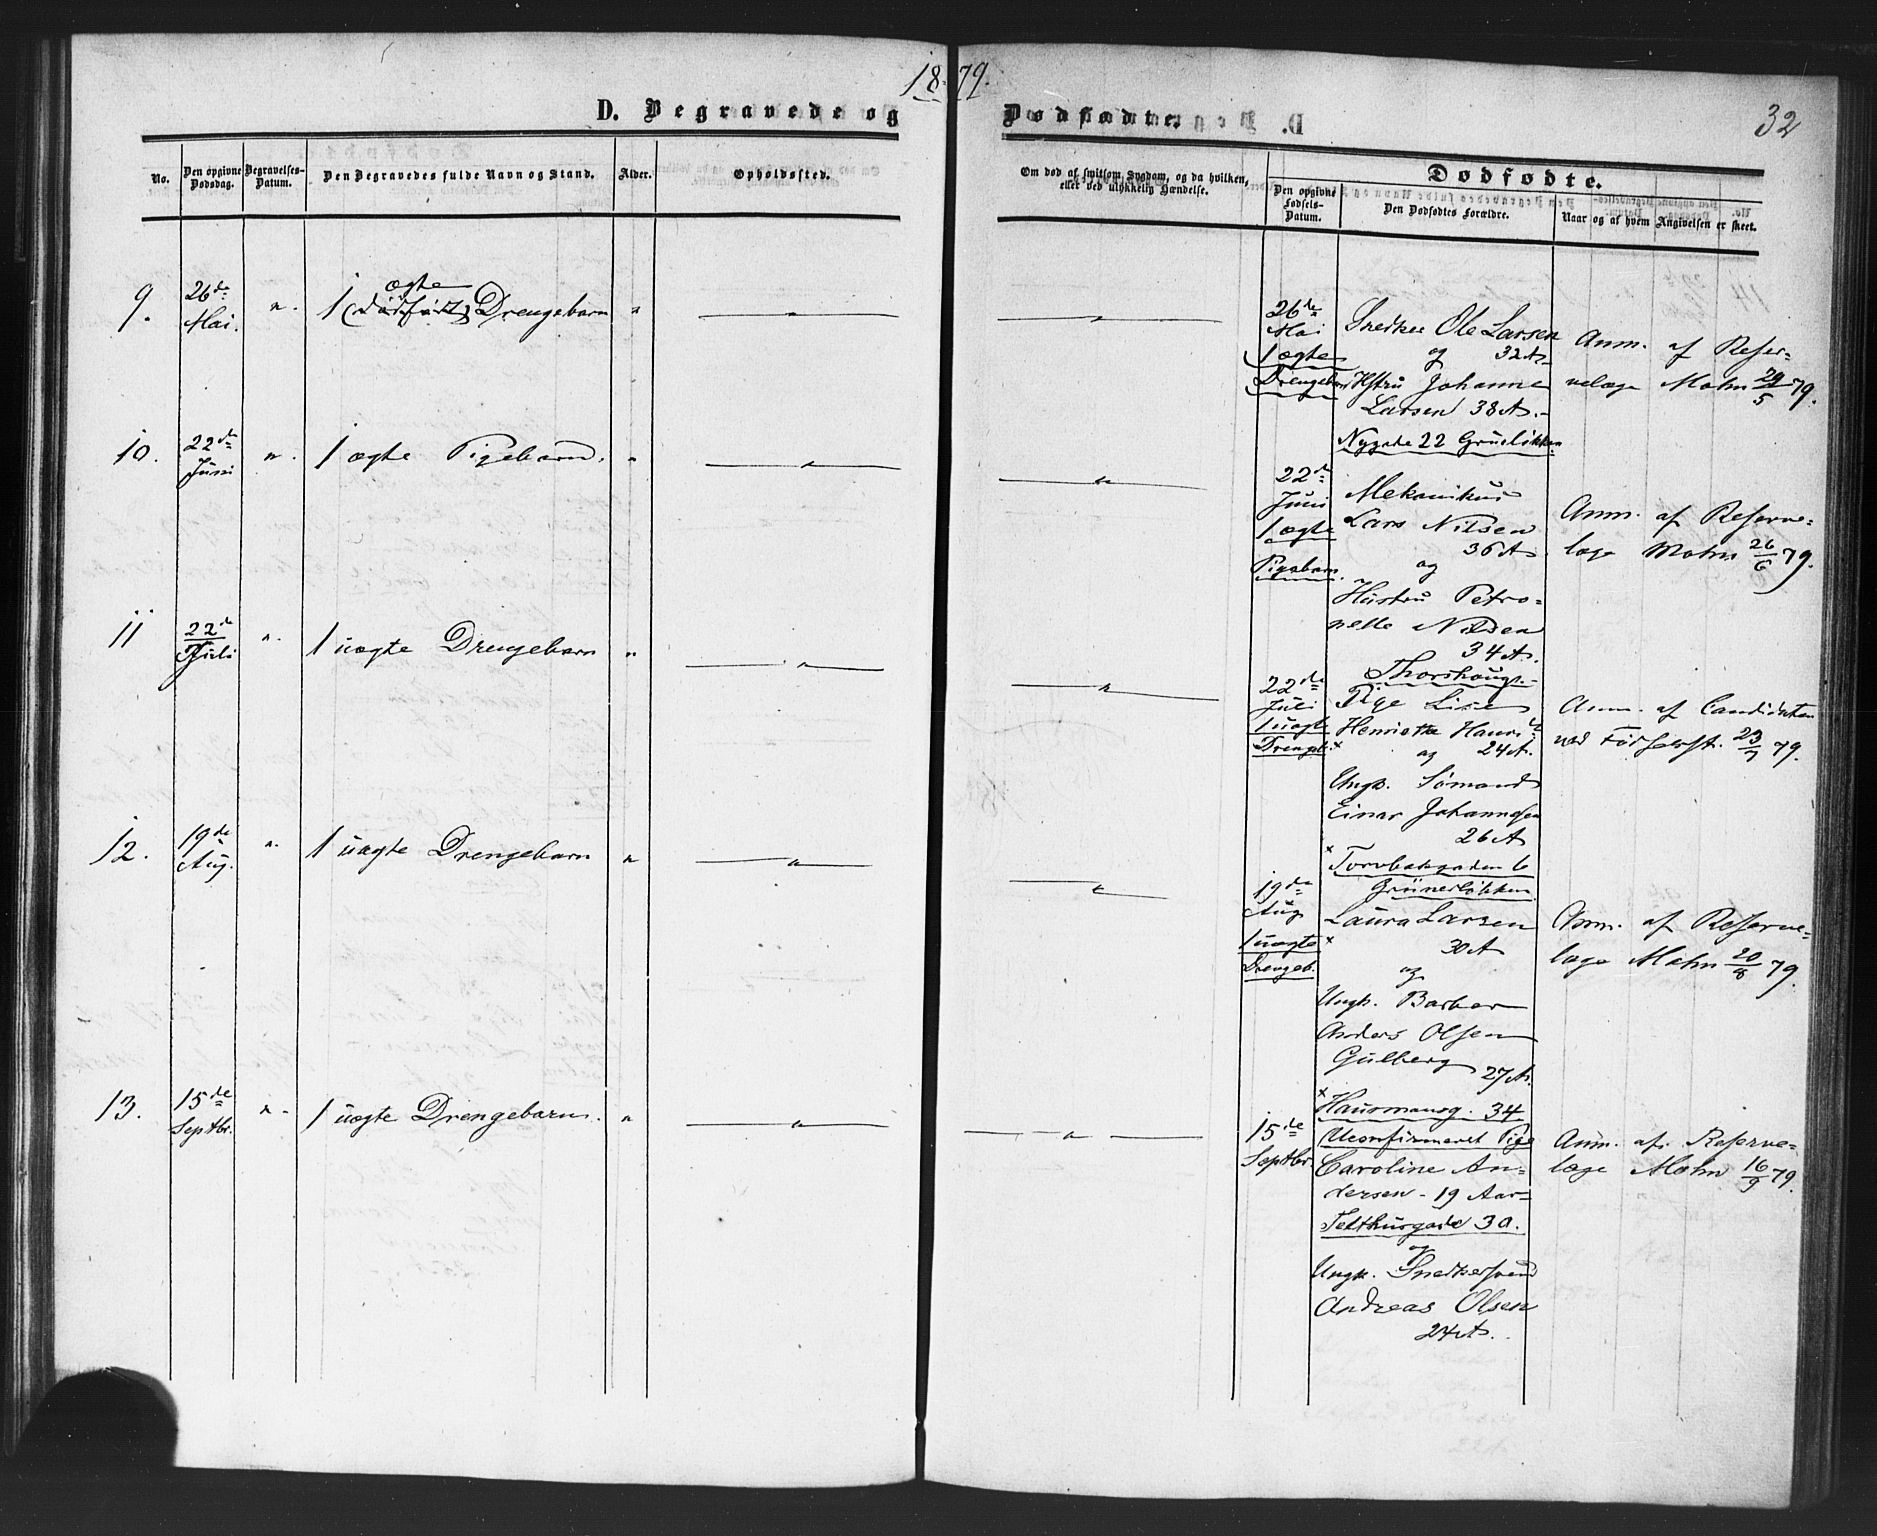 18 79.
D. Begravede og Dødfødte.
32
No.
Den opgivne Dødsdag.
Begravelses-Datum.
Den Begravedes fulde Navn og Stand.
Alder.
Opholdssted.
Om død af smitsom Sygdom, og da hvilken,
eller ved ulykkelig Hændelse.
Dødfødte.
Den opgivne Fødsels-Datum.
Den Dødfødtes Forældre.
Naar og af hvem Angivelsen er skeet.
9.
26de
Mai.
"
ægte
1 (dødfødt) Drengebarn
"
"
"
26de
Mai
1 ægte
Drengebarn
Snedker Ole Larsen
og 32 A.
Hstru Johanne
Larsen 38 A.
Nygade 22 Grüeløkken
Anm. af Reser-
velæge Mohn 29/5 79.
10.
22de
Juni
"
1 ægte Pigebarn.
"
"
"
22de
Juni
1 ægte
Pigebarn.
Mekanikus
Lars Nilsen
36 A
og
Hustru Petro-
nelle Nilsen
34 A.
Thorshaug.
Anm. af Reserve-
læge Mohn 26/6 79.
11
22de
Juli
"
1 uægte Drengebarn
"
"
"
22de
Juli
1 uægte
Drengeb.
Pige Lise
Henriette
24 A.
og
Ungk. Sømand
Einar Johannesen
26 A
× Torvbakgaden 6
Grünerløkken
Anm. af Candidaten
ved Fødselsst. 23/7 79.
12.
19de
Aug.
"
1 uægte Drengebarn
"
"
"
19de
Aug
1 uægte ×
Drengeb.
Laura Larsen
30 A
og
Ungk. Barber
Anders Olsen
Gulberg
27 A.
× Hausmansg. 34
Anm. af Reserve-
læge Mohn 20/8 79.
13.
15de
Septbr.
"
1 uægte Drengebarn.
"
"
"
15de
Septbr.
Uconfirmeret Pige
Caroline An-
dersen - 19 Aar-
Telthusgade 30.
og
Ungk. Snedkersvend
Andreas Olsen
24 A.
Anm. af Reserve-
læge Mohn 16/9 79.